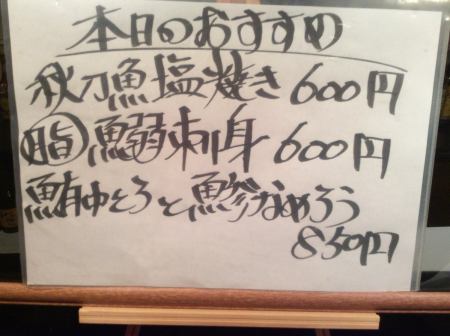 本日のおすすめ
秋刀魚塩焼き 600円
脂鰯刺身 600円
鮪中とろと鯵なめろう
850円